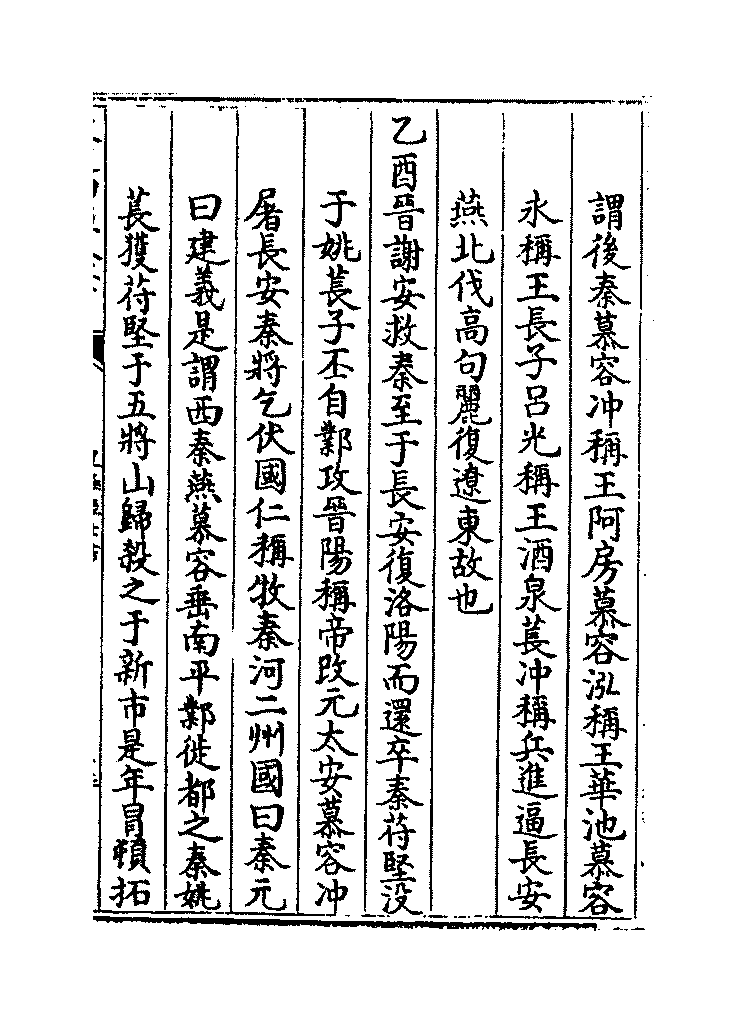 謂後秦慕容冲稱王阿房慕容泓稱王華池慕容
永稱王長子吕光稱王酒泉萇冲稱兵進逼長安
燕北伐高句麗復遼東故也
乙酉晉謝安救秦至于長安復洛陽而還卒秦苻堅没
于姚萇子丕自鄴攻晉陽稱帝改元太安慕容冲
屠長安秦將乞伏國仁稱牧秦河二州國曰秦元
曰建義是謂西秦燕慕容垂南平鄴徙都之秦姚
萇獲苻堅于五將山歸殺之于新市是年冒頓拓